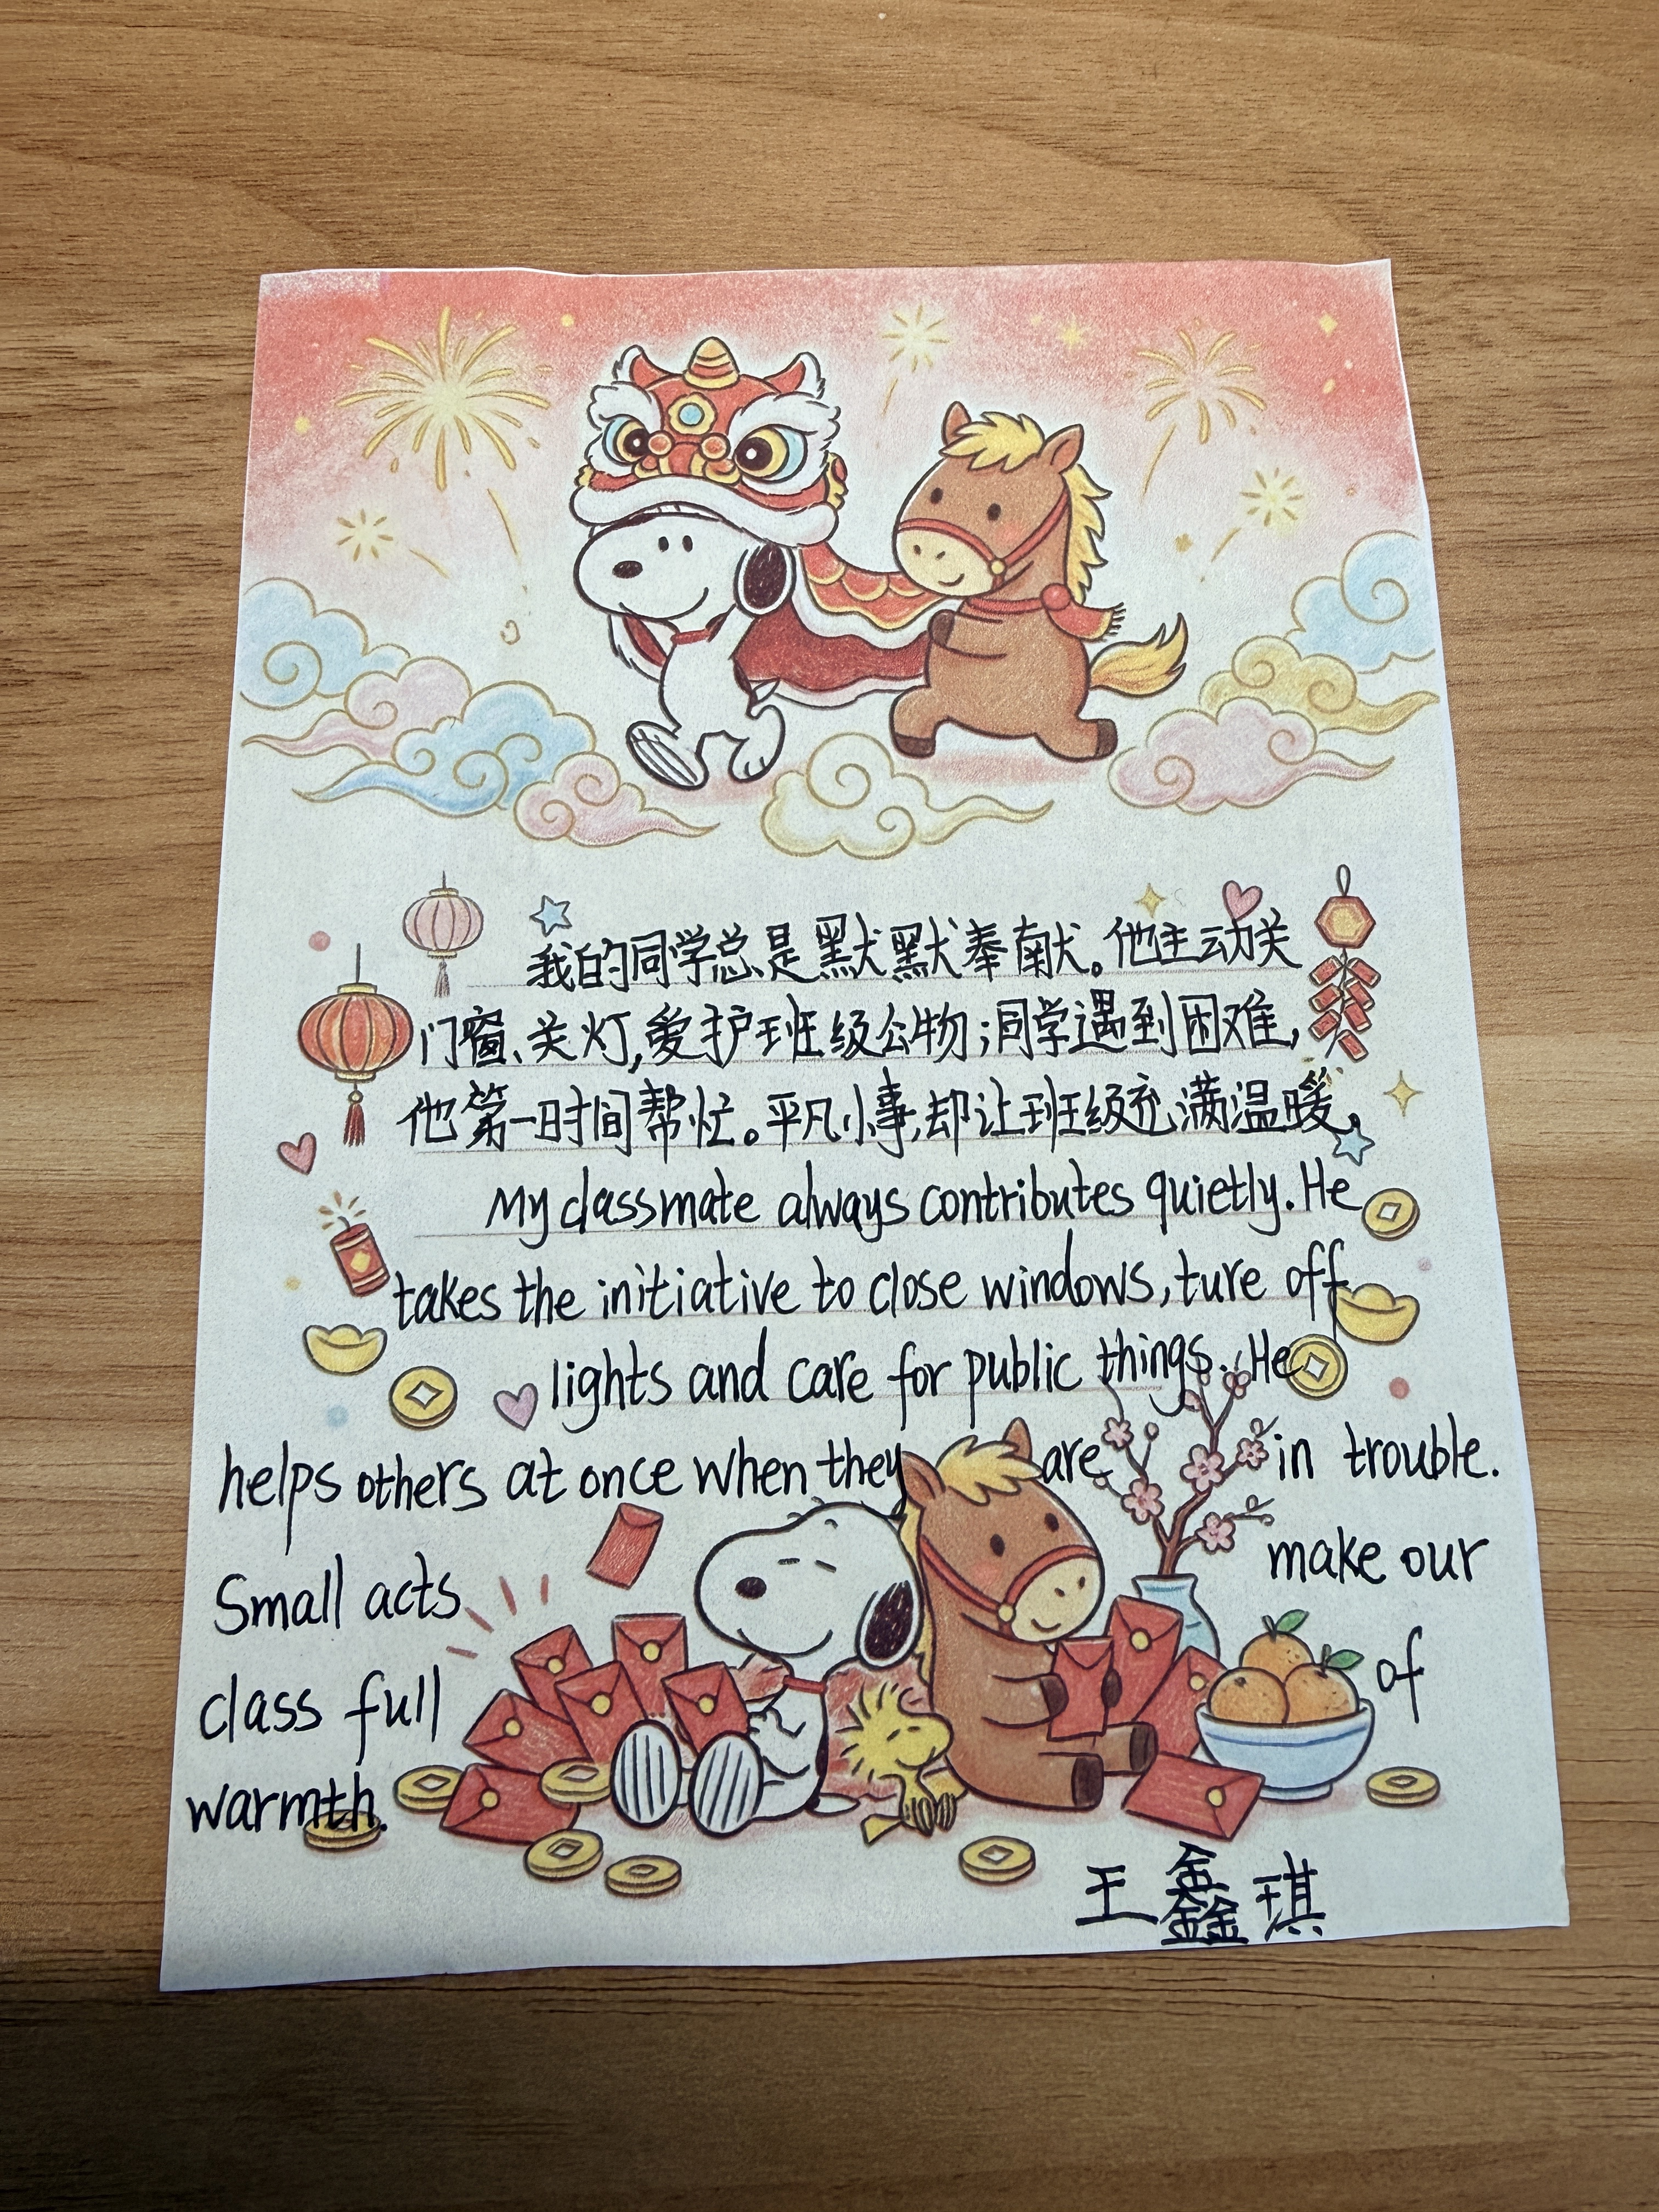 我的同学总是默默奉献。他主动关
门窗、关灯,爱护班级公物;同学遇到困难,
他第一时间帮忙。平凡小事,却让班级充满温暖。
My classmate always contributes quietly. He
takes the initiative to close windows, ture off
lights and care for public things. He
helps others at once when they are in trouble.
Small acts make our
class full of
warmth.
王鑫琪